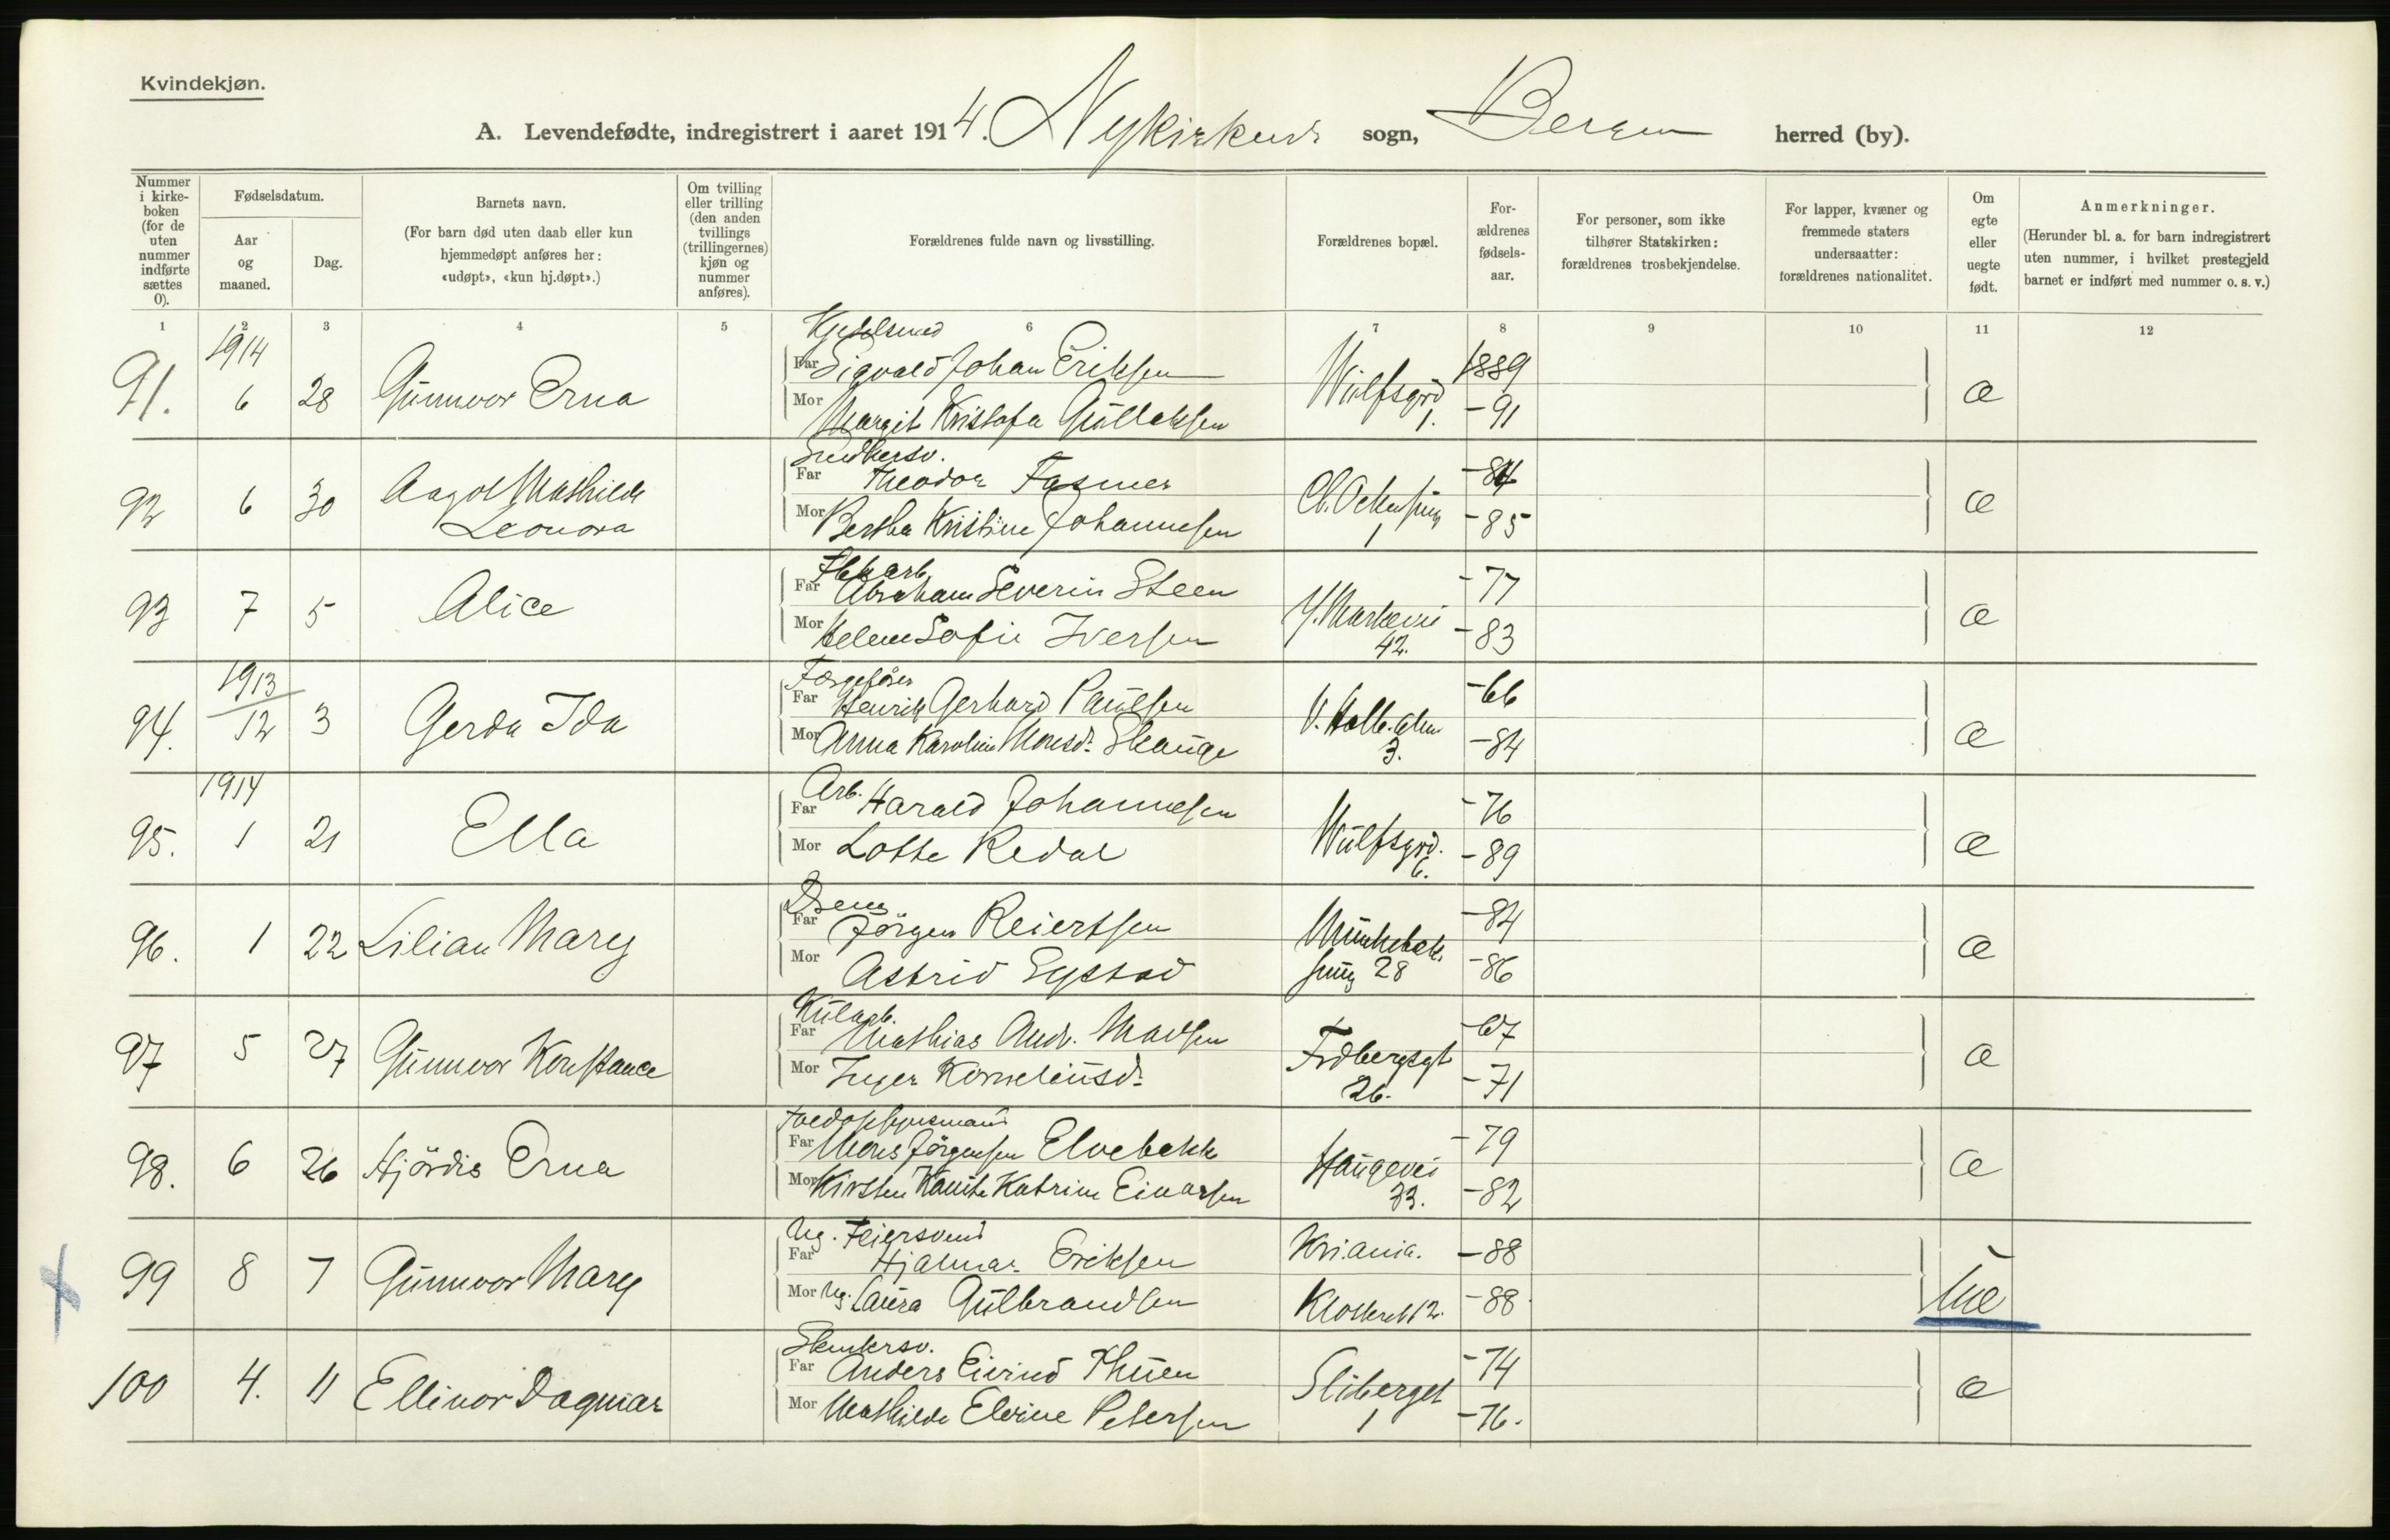 Kvindekjøn.
A. Levendefødte, indregistrert i aaret 1914. Nykirkens sogn, Bergen herred (by).
Nummer i kirke-boken (for de uten nummer indførte sættes 0).
Fødselsdatum.
Aar og maaned.
Dag.
Barnets navn.
(For barn død uten daab eller kun hjemmedøpt anføres her: «udøpt», «kun hj.døpt».)
Om tvilling eller trilling (den anden tvillings (trillingernes) kjøn og nummer anføres).
Forældrenes fulde navn og livsstilling.
Forældrenes bopæl.
For-ældrenes fødsels-aar.
For personer, som ikke tilhører Statskirken: forældrenes trosbekjendelse.
For lapper, kvæner og fremmede staters undersaatter: forældrenes nationalitet.
Om egte eller uegte født.
Anmerkninger.
(Herunder bl. a. for barn indregistrert uten nummer, i hvilket prestegjeld barnet er indført med nummer o. s. v.)
1 2 3 4 5 6 7 8 9 10 11 12
1914
91. 6 28 Gunnvor Erna
Kjedelsmed
Far Sigvald Johan Eriksen Wulfsgrd 1. 1889
Mor Margit Kristofa Gullaksen - 91
æ
92 6 30 Aagot Mathilde Leonora
Far Theodor Fasmer - 84
Mor Bertha Kristine Johannesen 1 - 85
æ
93 7 5 Alice
Far Abraham Severin Steen - 77
Mor Helene Sofie Iversen Y. Markevei 42. - 83
æ
1913
94. 12 3 Gerda Ida
Færgefører
Far Henrik Gerhard Paulsen - 66
Mor Anna Karoline Monsdr Skauge 3. - 84
æ
1914
95. 1 21 Ella
Arb.
Far Harald Johannesen - 76
Mor Lotte Redal Wulfsgrd. 6. - 89
æ
96. 1 22 Lilian Mary
Far Jörgen Reiertsen - 84
Mor Astrid Systad Munkebek smug 28 - 86
æ
97 5 27 Gunnvor Konstance
Kularb.
Far Mathias Andr. Madsen - 67
Mor Inger Korneliusdr Frdbergsgt 26. - 71
æ
98. 6 26 Hjördis Erna
Far Mons Jörgensen Elvebakk - 79
Mor Kirsten Katrine Einarsen Haugevei 33. - 82
æ
99 8 7 Gunnvor Mary
Ug. Feiersvend
Far Hjalmar Eriksen Kriania. - 88
Mor Ug. Laura Gulbrandsen Klosteret 12. - 88
uæ
100 4. 11 Ellinor Dagmar
Far Anders Eivind Thuen - 74
Mor Mathilde Elvine Petersen Sliberget 1 - 76.
æ